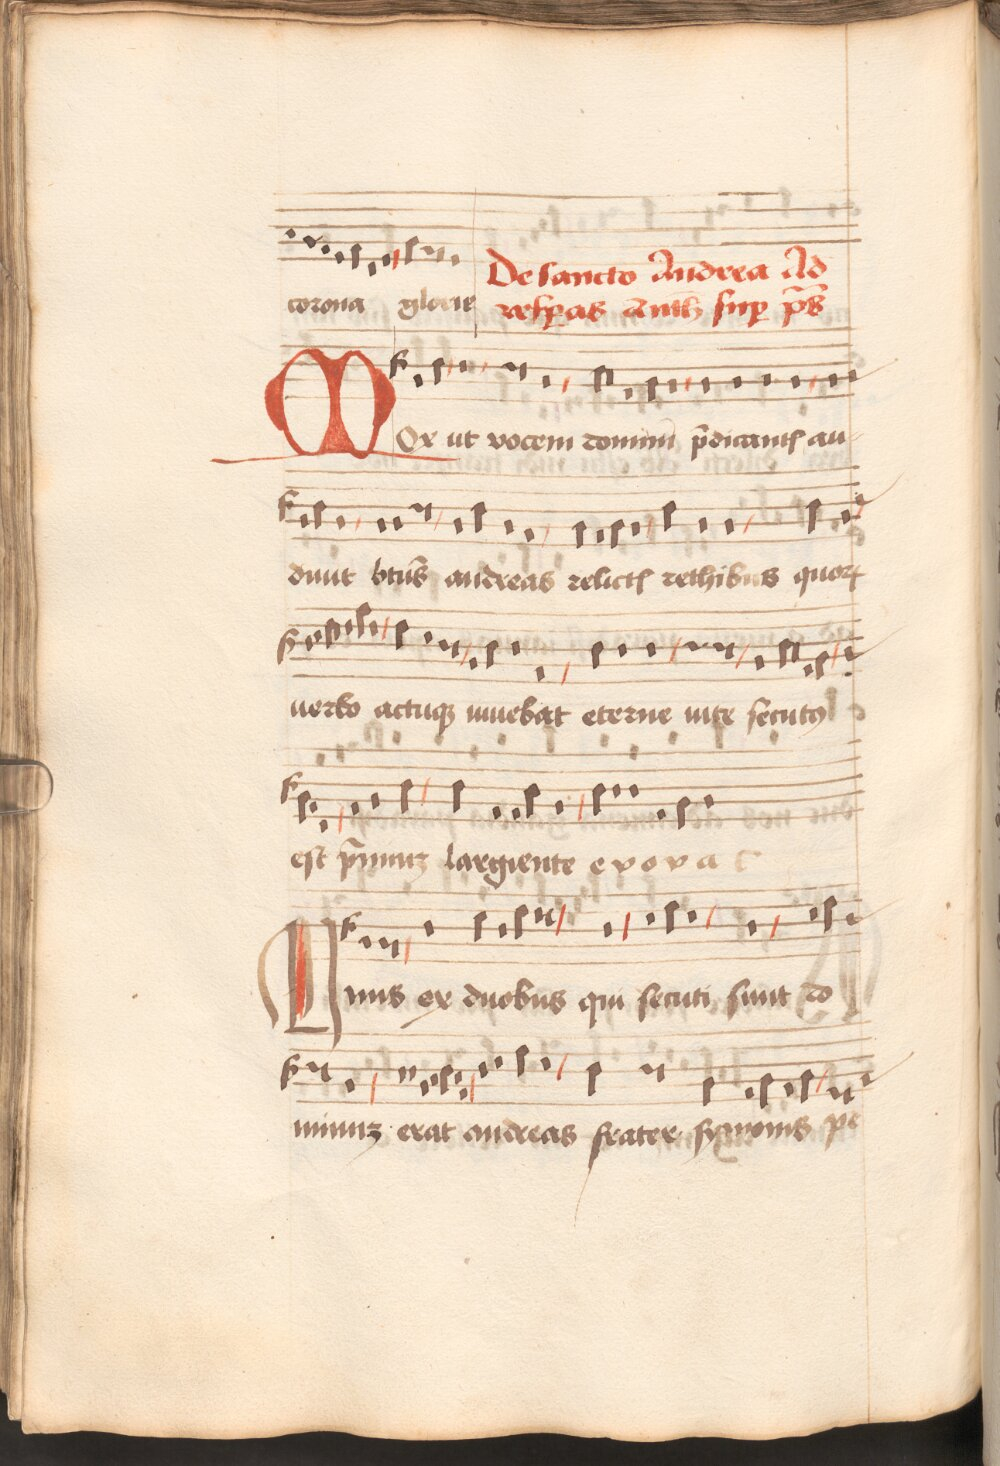 corona glorie De sancto Andrea Ad
vesp̱as Anth sup p̄s
MOx ut vocem domini p̄dicantꝭ au-
diuit btūs andreas relictꝭ rethibus quoꝝ
uerbo actuqꝫ uiuebat eterne uite secutꝯ
est p̄miuꝫ largiente e v o v a e
Unus ex duobus qui secuti sunt do
minuꝫ erat andreas frater symonis pe